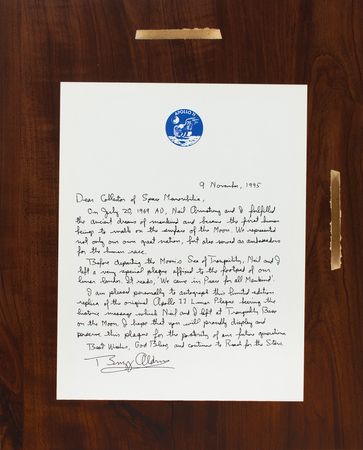 APOLLO 11
9 November, 1995
Dear Collector of Space Memorabilia,
On July 20, 1969 AD, Neil Armstrong and I fulfilled
the ancient dreams of mankind and became the first human
beings to walk on the surface of the Moon. We represented
not only our own great nation, but also served as ambassadors
for the human race.
Before departing the Moon's Sea of Tranquility, Neil and I
left a very special plaque affixed to the footpad of our
lunar lander. It reads, 'We came in Peace for all Mankind'.
I am pleased personally to autograph this limited edition
replica of the original Apollo 11 Lunar Plaque bearing the
historic message which Neil and I left at Tranquility Base
on the Moon. I hope that you will proudly display and
preserve this plaque for the posterity of our future generations
Best Wishes, God Bless, and continue to Reach for the Stars
Buzz Aldrin